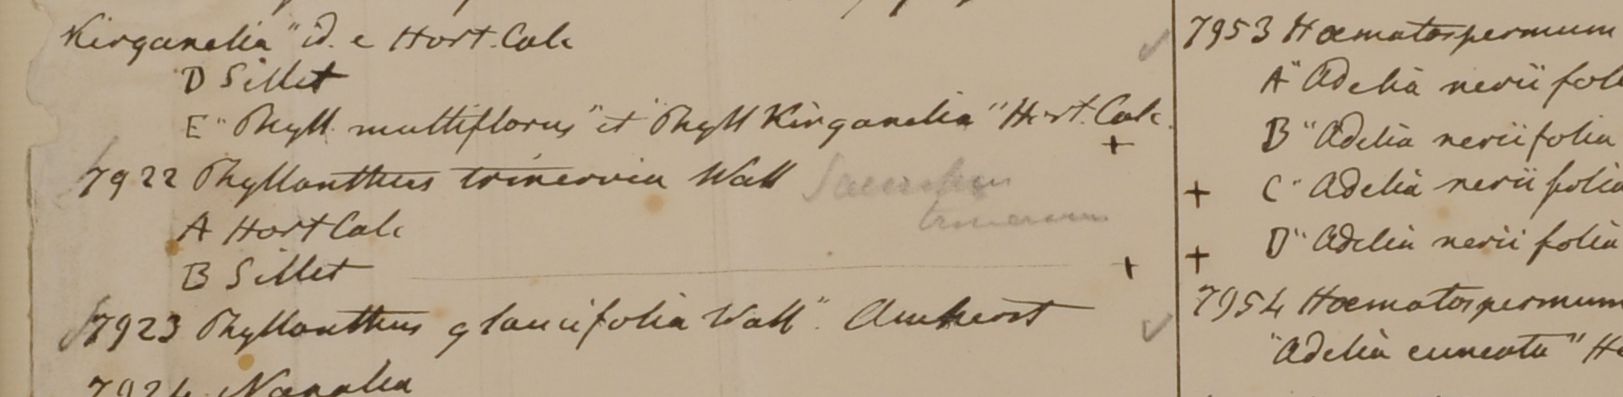 Kirganelia" id. e Hort. Calc
D Sillet
E "Phyll. multiflorus" et "Phyll Kirganelia" Hort. Calc.
+
7922 Phyllanthus trinervia Wall
A Hort Calc
B Sillet +
7923 Phyllanthus glaucifolia Wall". Amherst
7924
7953 Hæmatospermum
A" Adelia nerii fol
B "Adelia neriifolia
+ C" Adelia nerii folia
+ D" Adelia nerii folia
7954 Hæmatospermum
"Adelia cuneata" H